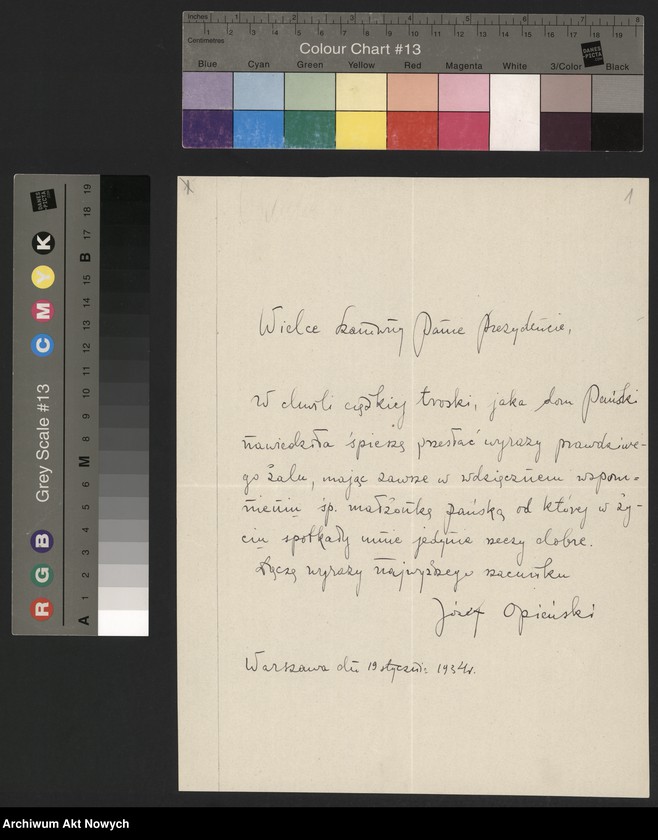 inches 1 2 3 4 5 6 7 8
Centimetres 1 2 3 4 5 6 7 8 9 10 11 12 13 14 15 16 17 18 19
Colour Chart #13
DANES PICTA .COM
Blue Cyan Green Yellow Red Magenta White 3/Color Black
DANES PICTA .COM
R G B Grey Scale #13 C M Y K
A 1 2 3 4 5 6 M 8 9 10 11 12 13 14 15 B 17 18 19
1
Wielce Szanowny Panie Prezydencie,
W chwili ciężkiej troski, jaka dom Pański
nawiedziła śpieszę przesłać wyrazy prawdziwe-
go żalu, mając zawsze w wdzięcznem wspom-
nieniu śp. małżonkę pańską od której w ży-
ciu spotkały mnie jedynie rzeczy dobre.
Łączę wyrazy najwyższego szacunku
Józef Opieński
Warszawa dn 19 stycznia 1934r.
Archiwum Akt Nowych